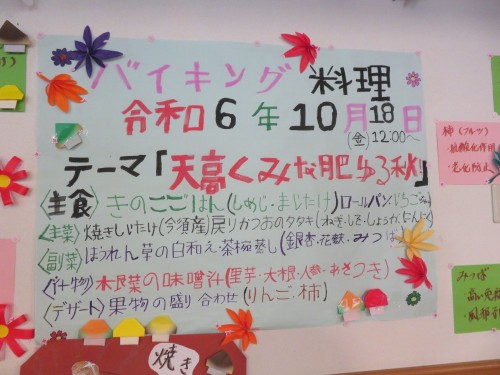 バイキング料理
令和6年10月18日
(金) 12:00～
テーマ「天高くみな肥ゆる秋」
〈主食〉きのこごはん(しめじ・まいたけ)ロールパン
〈主菜〉焼きしいたけ(今須産)戻りかつおのタタキ(ねぎ・しそ・しょうが・にんにく)
〈副菜〉ほうれん草の白和え・茶碗蒸し(銀杏・花麩・みつば)
〈汁物〉根菜の味噌汁(里芋・大根・人参・あさつき)
〈デザート〉果物の盛り合わせ(りんご・柿)
焼き
柿(フルーツ)
・抗酸化作用
・老化防止
みつば
・高い免疫